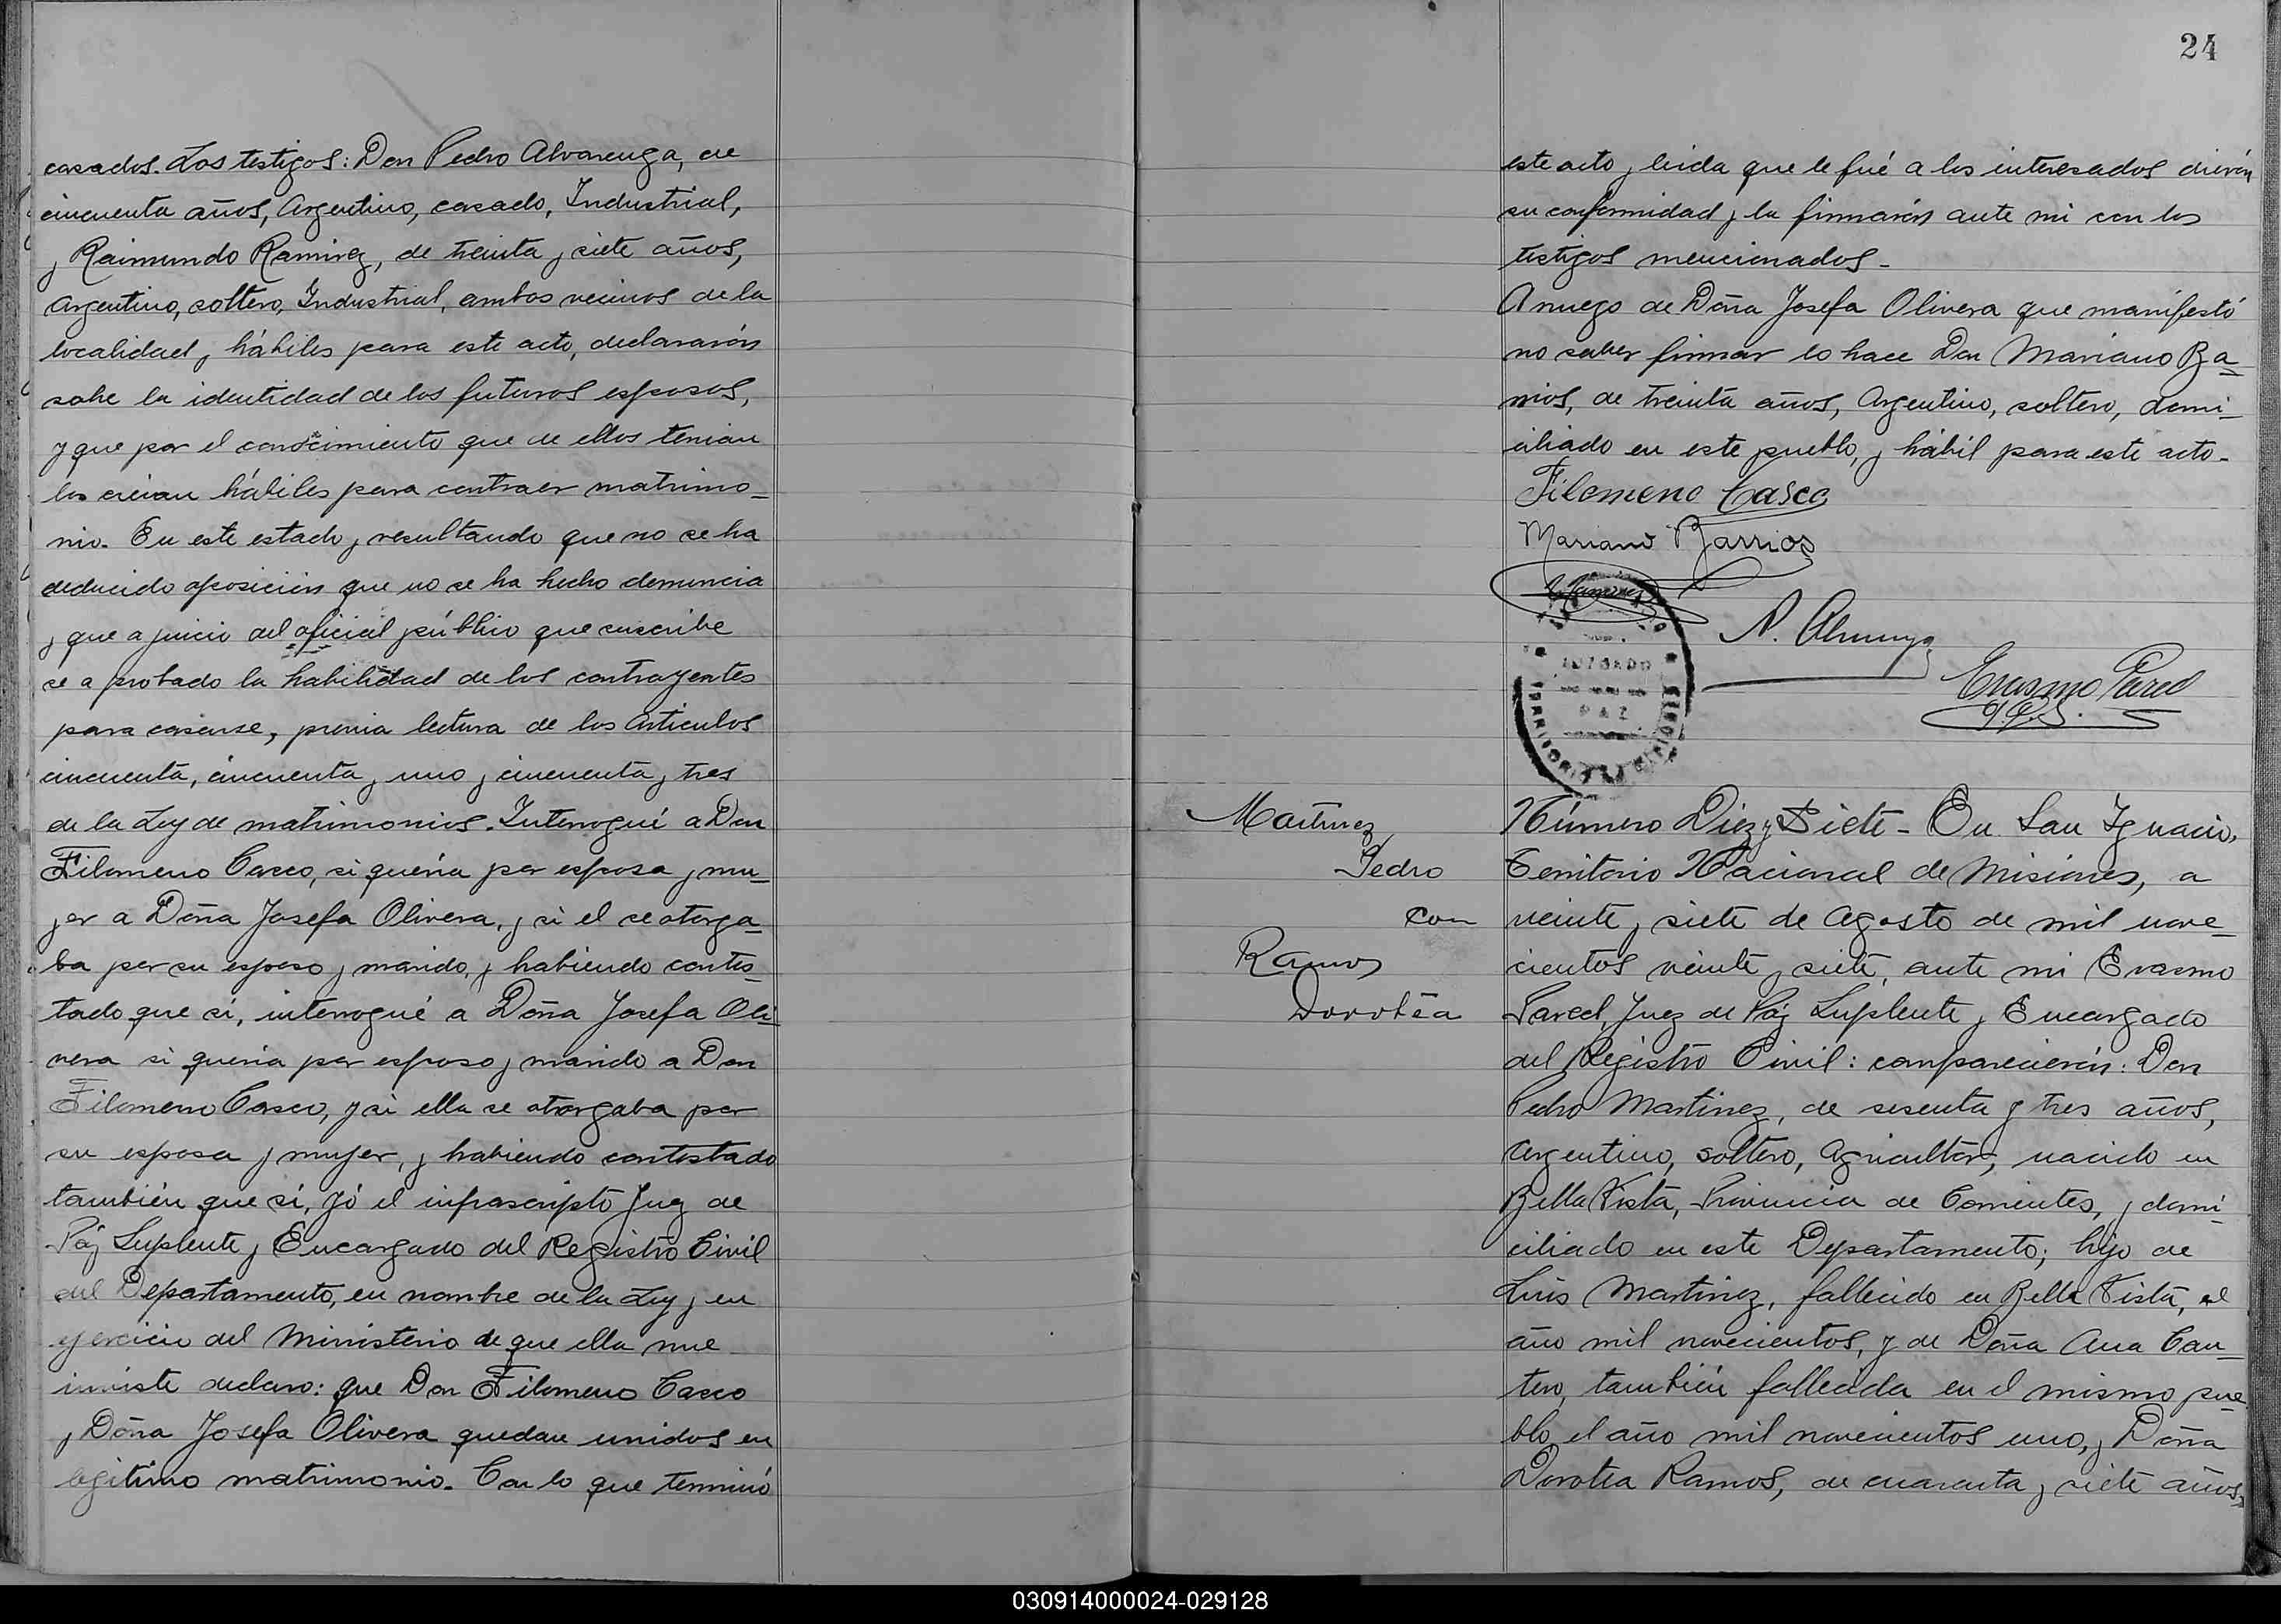 casados. Los testigos: Don Pedro Alvarenga, de
cincuenta años, Argentino, casado, Industrial,
y Raimundo Ramirez, de treinta y siete años,
Argentino, soltero, Industrial, ambos vecinos de la
localidad, hábiles para este acto, declararón
sobre la identidad de los futuros esposos,
y que por el conocimiento que de ellos tenian
los creian hábiles para contraer matrimo-
nio. En este estado y resultando que no se ha
deducido oposición que no se ha hecho denuncia
y que a juicio del oficial público que suscribe
se a probado la habilidad de los contrayentes
para casarse, previa lectura de los Articulos
cincuenta, cincuenta y uno y cincuenta y tres
de la Ley de matrimonios. Interrogué a Don
Filomeno Casco, si queria por esposa y mu-
jer a Doña Josefa Olivera, y si el se otorga-
ba por su esposo y marido, y habiendo contes-
tado que si, interrogué a Doña Josefa Oli-
vera si queria por esposo y marido a Don
Filomeno Casco, y si ella se otorgaba por
su esposa y mujer, y habiendo contestado
también que si, yó el infrascripto Juez de
Páz Suplente y Encargado del Registro Civil
del Departamento, en nombre de la Ley y en
ejercicio del Ministerio de que ella me
inviste declaro: que Don Filomeno Casco
y Doña Josefa Olivera quedan unidos en
legitimo matrimonio. Con lo que terminó
24
este acto y leida que le fué a los interesados dierón
su conformidad y la firmarón ante mi con los
testigos mencionados-
A ruego de Doña Josefa Olivera que manifestó
no saber firmar lo hace Don Mariano Ba-
rrios, de treinta años, Argentino, soltero, domi-
ciliado en este pueblo, y hábil para este acto-
Filomeno Casco
Mariano Barrios
R Ramirez
Erasmo Pared
JUZGADO
PAZ
TERRITORIO MISIONES
Martinez
Pedro
con
Ramos
Dorotéa
Número Diez y Siete- En San Ignacio,
Territorio Nacional de Misiones, a
veinte y siete de Agosto de mil nove-
cientos veinte y siete, ante mi Erasmo
Pared, Juez de Páz Suplente y Encargado
del Registro Civil: comparecierón: Don
Pedro Martinez, de sesenta y tres años,
Argentino, soltero, Agricultor, nacido en
Bella Vista, Provincia de Corrientes, y domi-
ciliado en este Departamento; hijo de
Luis Martinez, fallecido en Bella Vista, el
año mil novecientos, y de Doña Ana Can-
tero, también fallecida en el mismo pue-
blo el año mil novecientos uno, y Doña
Dorotea Ramos, de cuarenta y siete años,
030914000024-029128